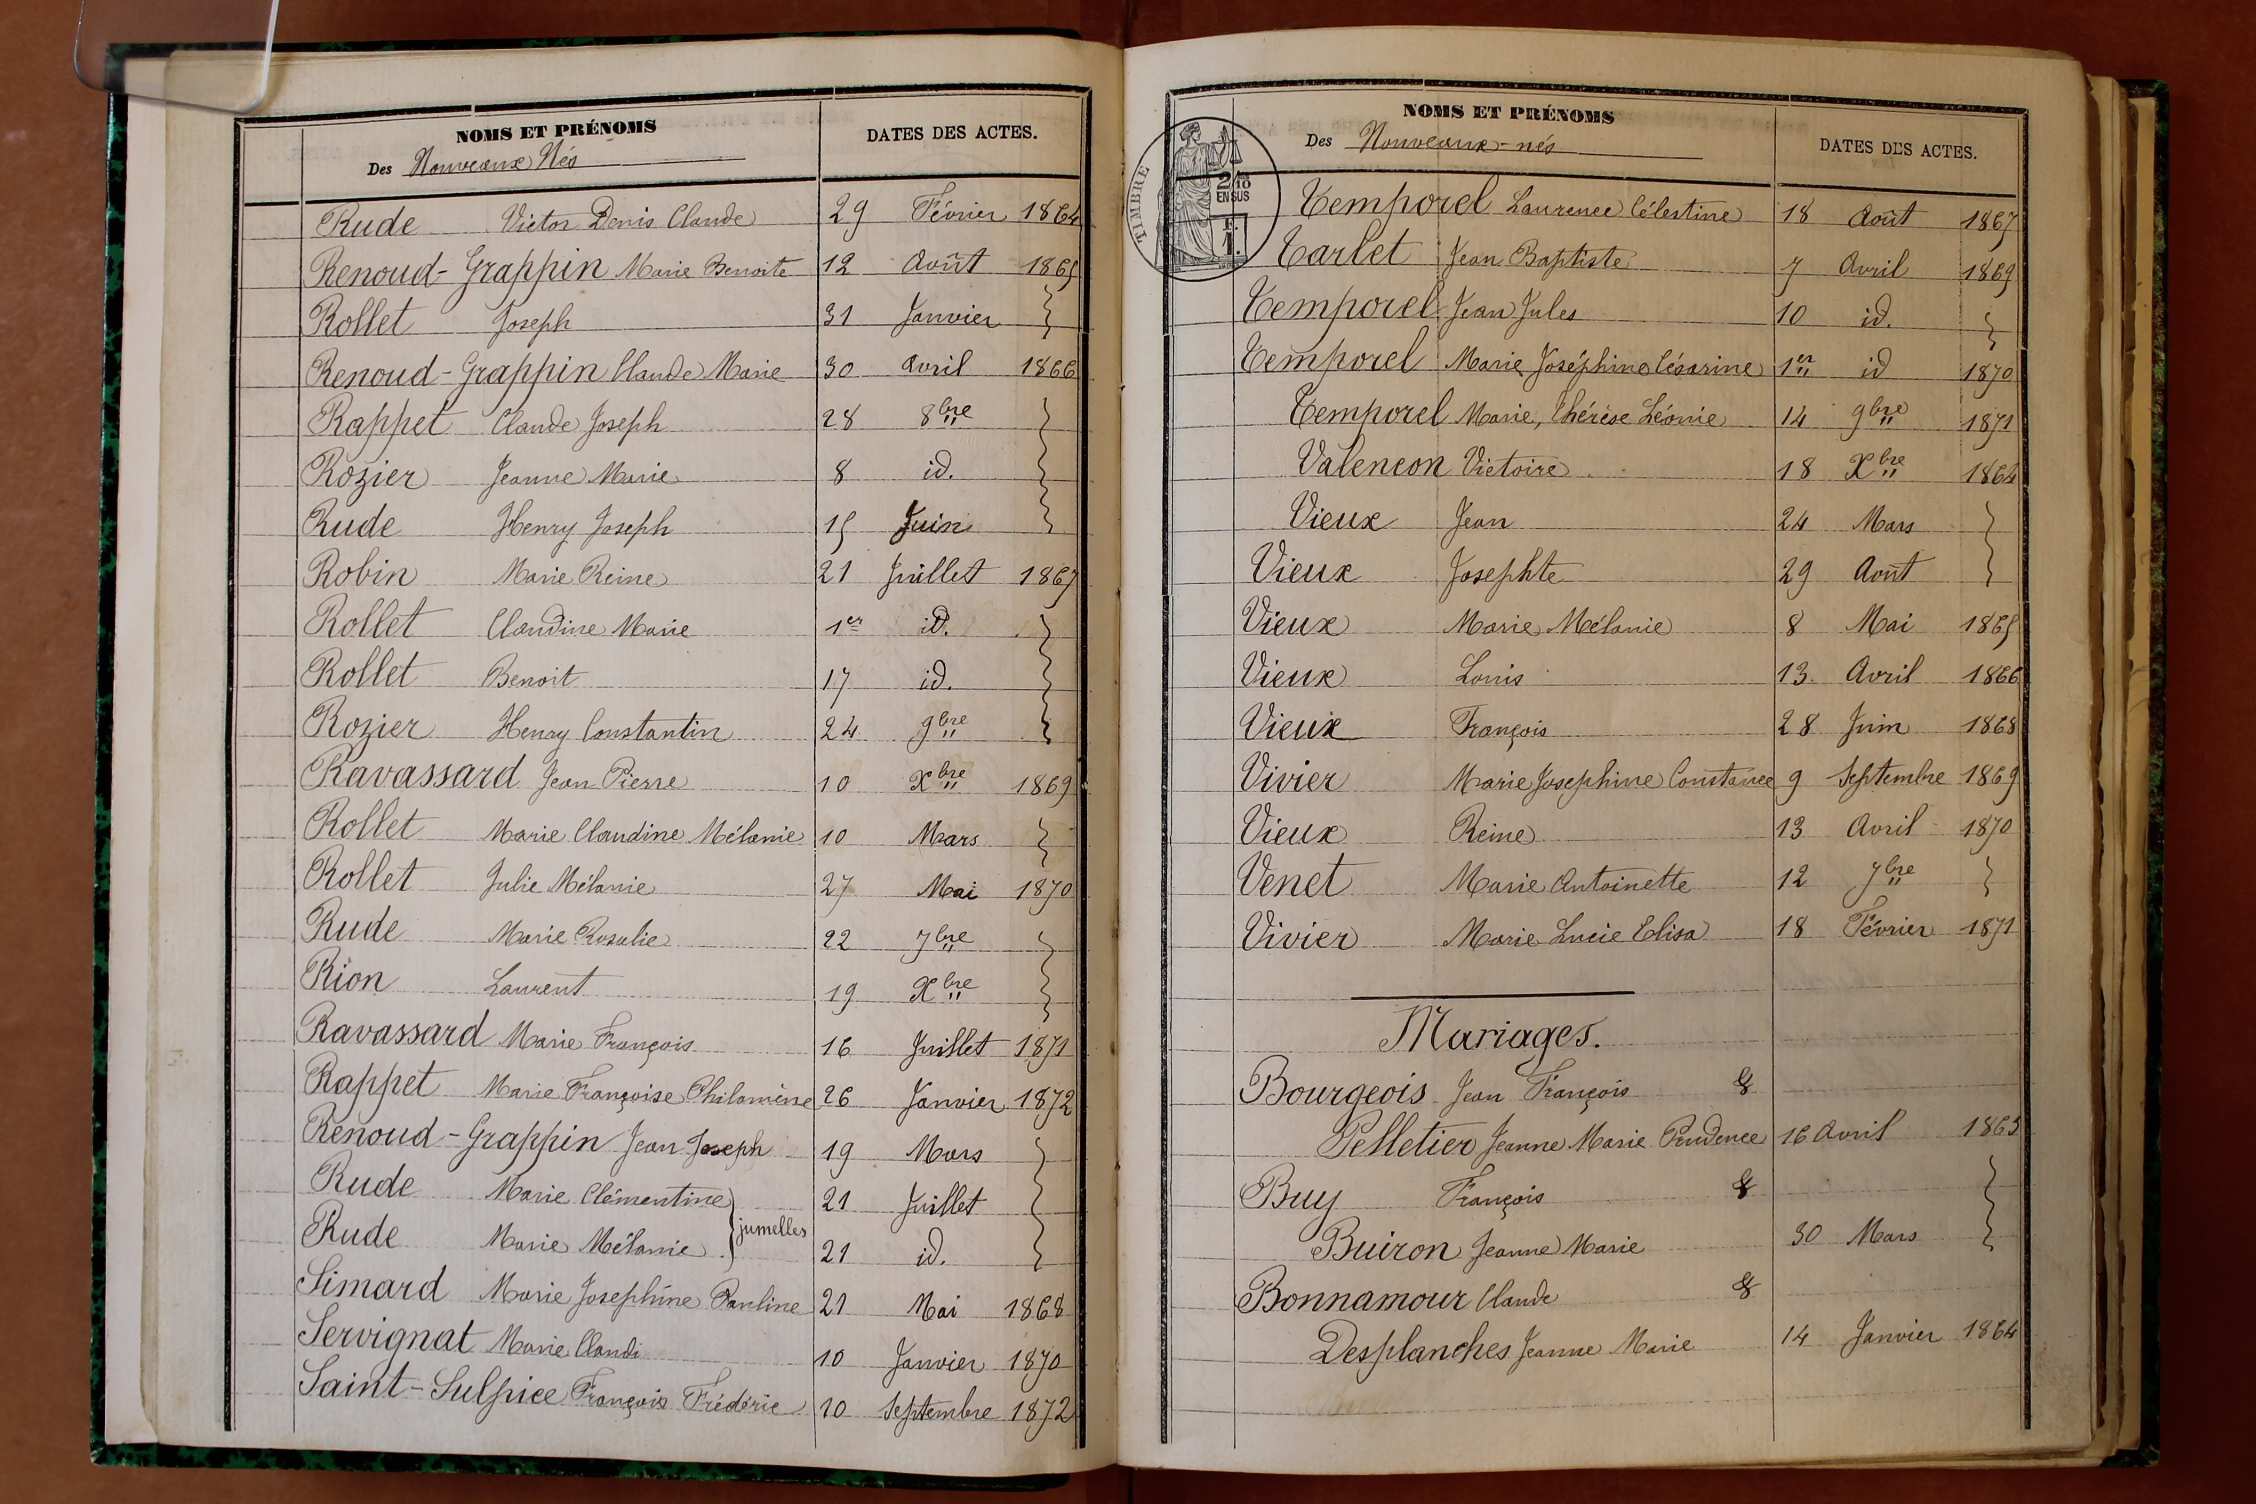 NOMS ET PRÉNOMS
DATES DES ACTES.
Des Nouveaux Nés
Rude Victor Denis Claude 29 Février 1864
Renoud-Grappin Marie Benoite 12 Août 1865
Rollet Joseph 31 Janvier }
Renoud-Grappin Claude Marie 30 Avril 1866
Rappet Claude Joseph 28 8bre }
Rozier Jeanne Marie 8 id. }
Rude Henry Joseph 15 Juin }
Robin Marie Reine 21 Juillet 1867
Rollet Claudine Marie 1er id. }
Rollet Benoit 17 id. }
Rozier Henry Constantin 24 9bre }
Ravassard Jean Pierre 10 Xbre 1869
Rollet Marie Claudine Mélanie 10 Mars }
Rollet Julie Mélanie 27 Mai 1870
Rude Marie Rosalie 22 7bre }
Rion Laurent 19 Xbre }
Ravassard Marie François 16 Juillet 1871
Rappet Marie Françoise Philomène 26 Janvier 1872
Renoud-Grappin Jean Joseph 19 Mars }
Rude Marie Clémentine } 21 Juillet }
jumelles
Rude Marie Mélanie } 21 id. }
Simard Marie Josephine Pauline 21 Mai 1868
Servignat Marie Claudi 10 Janvier 1870
Saint-Sulpice François Frédéric 10 Septembre 1872
NOMS ET PRÉNOMS
Des Nouveaux-nés
DATES DES ACTES.
TIMBRE
2/10
EN SUS
F.
1.
Temporel Laurence Célestine 18 Août 1867
Tarlet Jean Baptiste 7 Avril 1869
Temporel Jean Jules 10 id. }
Temporel Marie Joséphine Césarine 1er id 1870
Temporel Marie, Thérèse Léonie 14 9bre 1871
Valencon Victoire 18 Xbre 1864
Vieux Jean 24 Mars }
Vieux Josephte 29 Août }
Vieux Marie Mélanie 8 Mai 1865
Vieux Louis 13 Avril 1866
Vieux François 28 Juin 1868
Vivier Marie Josephine Constance 9 Septembre 1869
Vieux Reine 13 Avril 1870
Venet Marie Antoinette 12 7bre }
Vivier Marie Lucie Elisa 18 Février 1871
Mariages.
Bourgeois Jean François &
Pelletier Jeanne Marie Prudence 16 Avril 1863
Buy François &
Buiron Jeanne Marie 30 Mars }
Bonnamour Claude &
Desplanches Jeanne Marie 14 Janvier 1864